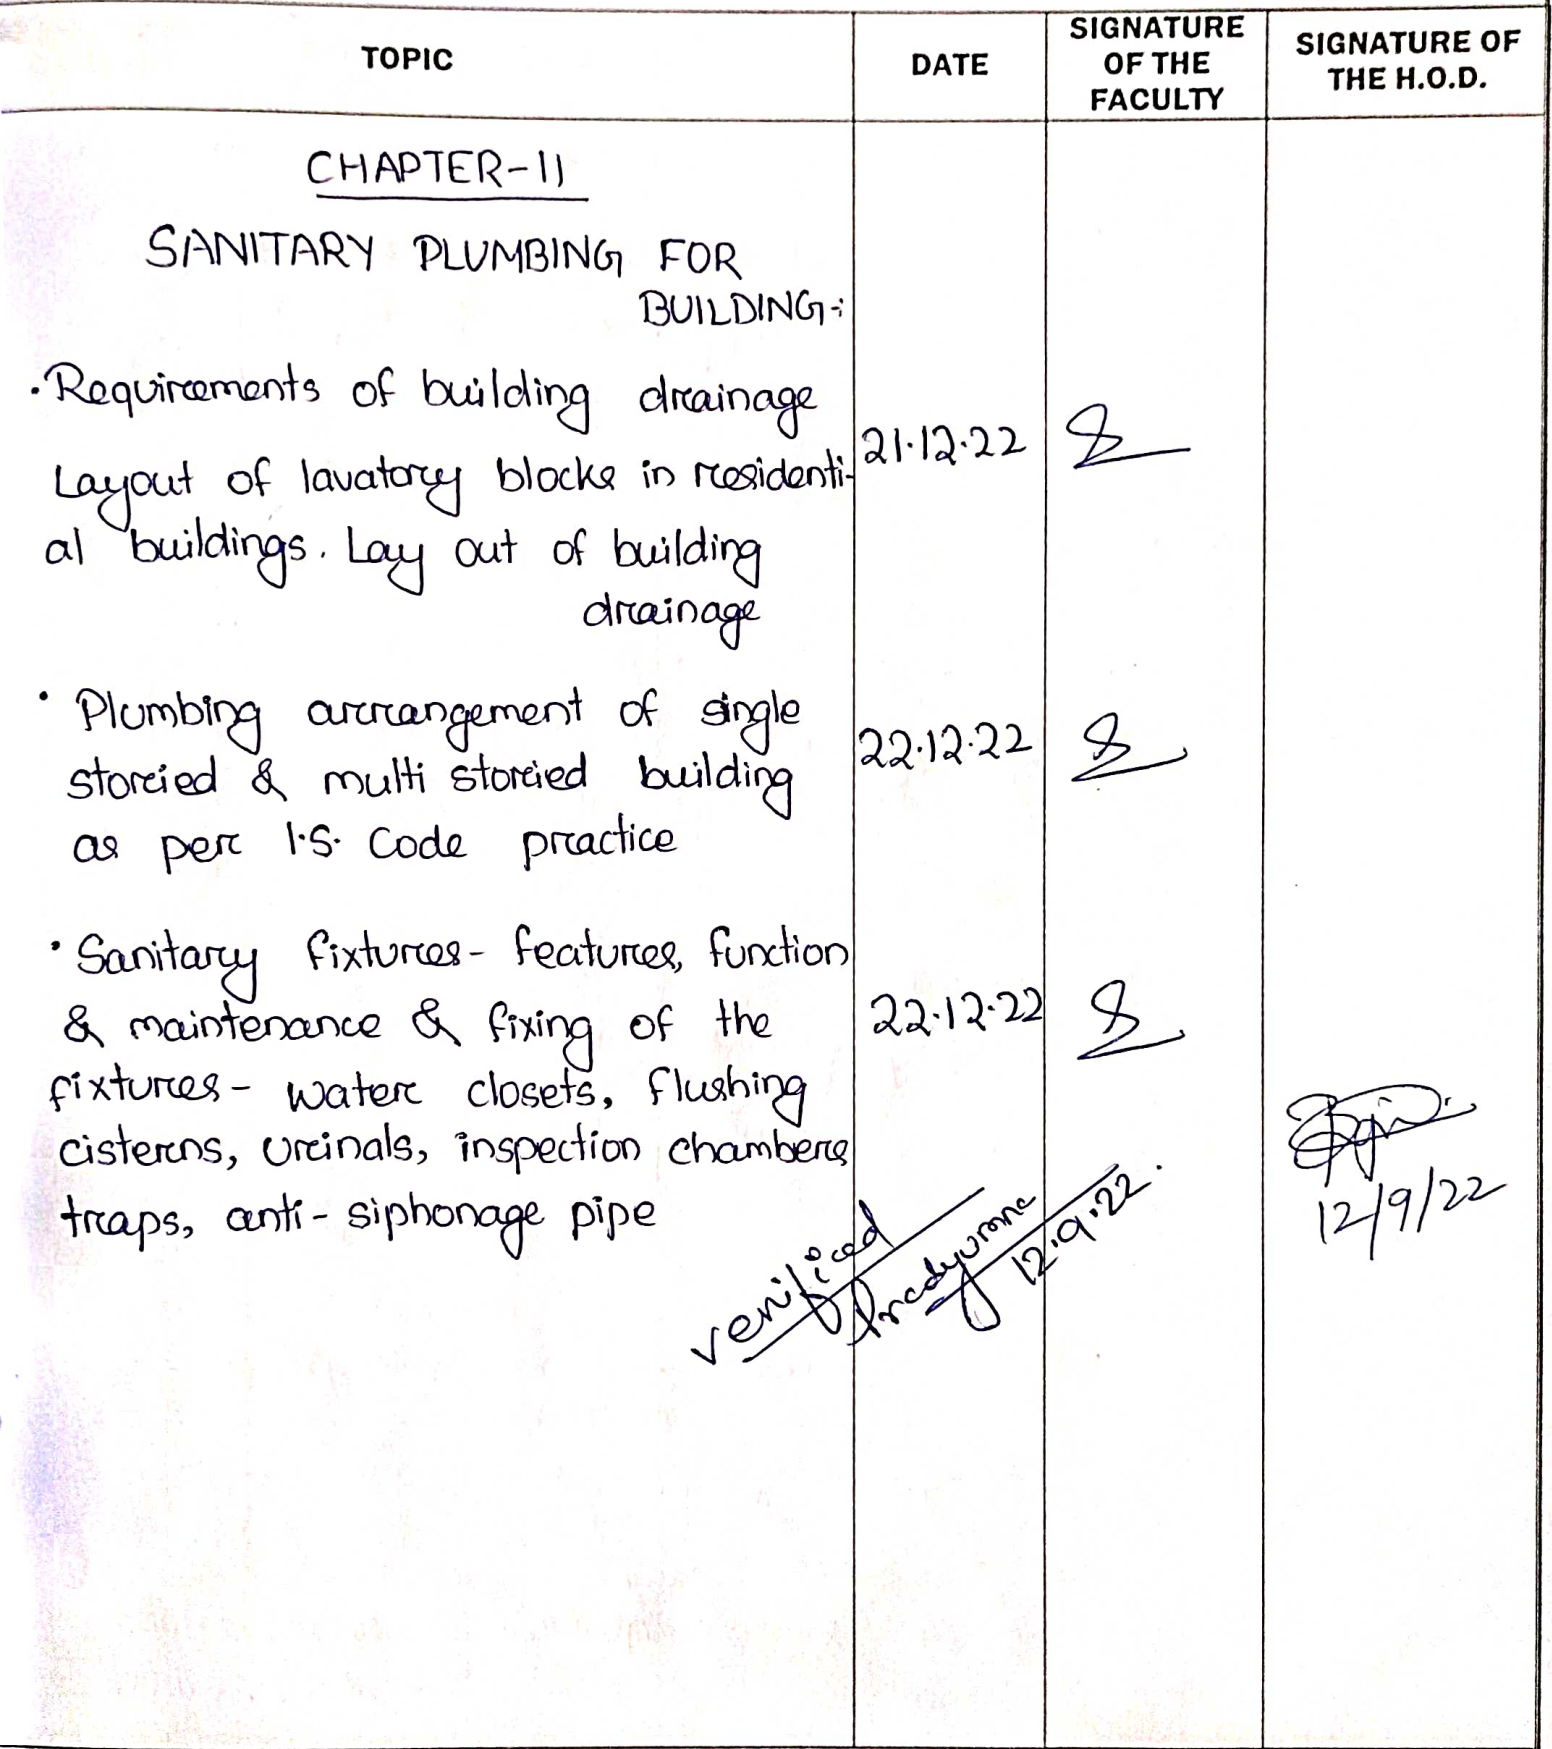 TOPIC
DATE
SIGNATURE
OF THE
FACULTY
SIGNATURE OF
THE H.O.D.
CHAPTER-11
SANITARY PLUMBING FOR
BUILDING:-
• Requirements of building drainage
Layout of lavatory blocks in residenti-
al buildings. Lay out of building
drainage
21.12.22
• Plumbing arrangement of single
storied & multi storied building
as per I.S. Code practice
22.12.22
• Sanitary fixtures - features, function
& maintenance & fixing of the
fixtures - water closets, flushing
cisterns, urinals, inspection chambers
traps, anti-siphonage pipe
22.12.22
verified
Pradyumna
12.9.22.
12/9/22